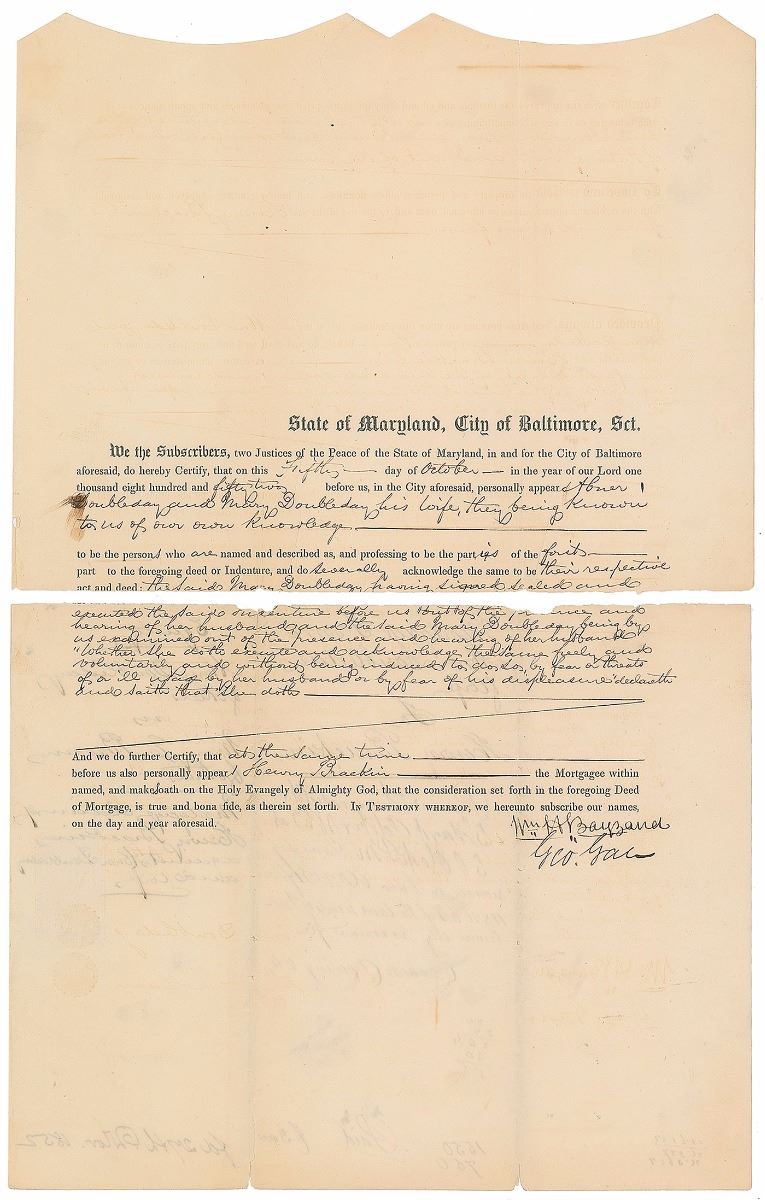 State of Maryland, City of Baltimore, Sct.
We the Subscribers, two Justices of the Peace of the State of Maryland, in and for the City of Baltimore
aforesaid, do hereby Certify, that on this Fifth day of October in the year of our Lord one
thousand eight hundred and fifty two before us, in the City aforesaid, personally appear Abner
Doubleday and Mary Doubleday his wife, they being known
to us of our own knowledge
to be the persons who are named and described as, and professing to be the parties of the first
part to the foregoing deed or Indenture, and do severally acknowledge the same to be their respective
act and deed: the said Mary Doubleday having signed sealed and
executed the said indenture before us out of the presence and
hearing of her husband and the said Mary Doubleday being by
us examined out of the presence and hearing of her husband
"Whether she doth execute and acknowledge the same freely and
voluntarily and without being induced to do so by fear or threats
of or ill usage by her husband or by fear of his displeasure" declareth
and saith that she doth
And we do further Certify, that at the same time
before us also personally appear Henry Brackin the Mortgagee within
named, and make oath on the Holy Evangely of Almighty God, that the consideration set forth in the foregoing Deed
of Mortgage, is true and bona fide, as therein set forth. In Testimony whereof, we hereunto subscribe our names,
on the day and year aforesaid.
Wm H Bayzand
Geo. Gae